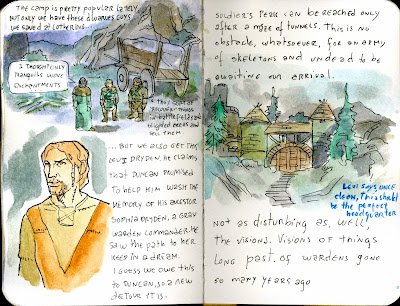 The camp is pretty popular lately
not only we have these dwarves guys
we saved at Lothering...
I thought only
Tranquils wove
enchantments
They
in battlefields and
blighted areas and
sell them
... But we also get this
Levi Dryden. He claims
that Duncan promised
to help him wash the
memory of his ancestor
Sophia Dryden, a Gray
Warden Commander. He
saw the path to her
keep in a dream.
I guess we owe this
to Duncan, so a new
detour it is.
Soldier's Peak can be reached only
after a maze of tunnels. This is no
obstacle, whatsoever, for an army
of skeletons and undead to be
awaiting our arrival.
Levi says, once
clean, this should
be the perfect
headquarter
Not as disturbing as, well,
the visions. Visions of things
long past, of wardens gone
so many years ago